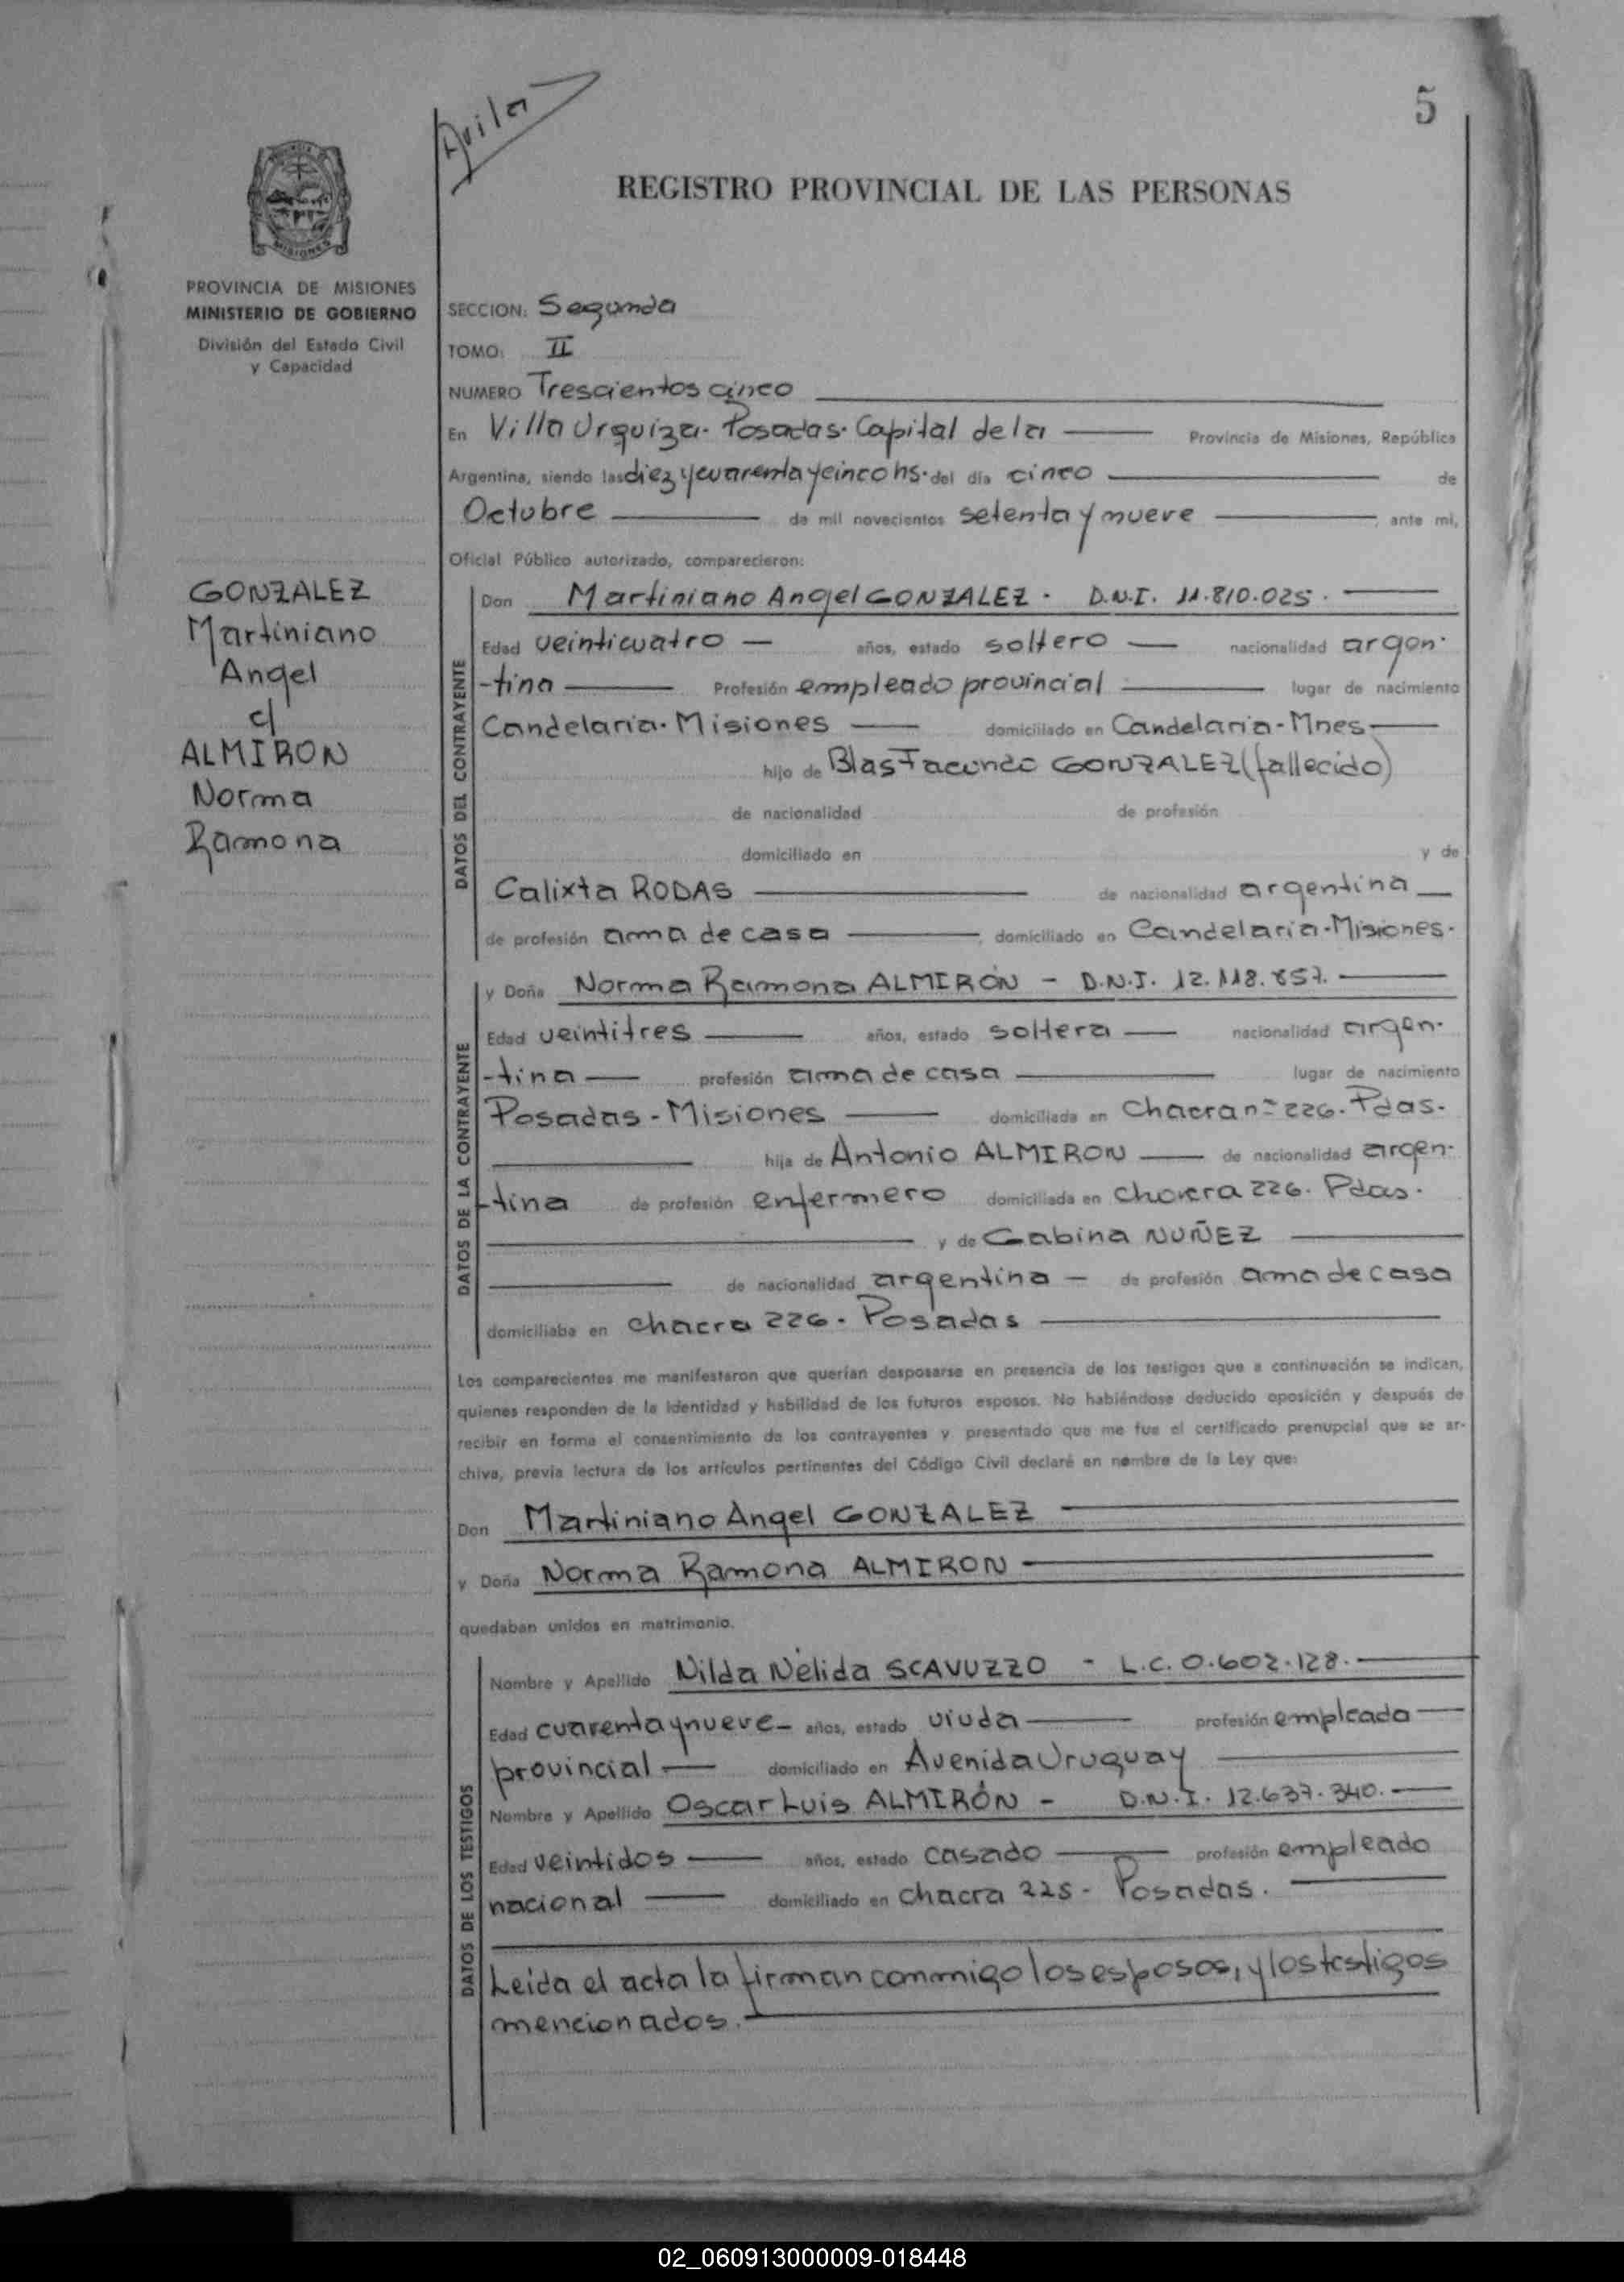 5
Avila
REGISTRO PROVINCIAL DE LAS PERSONAS
PROVINCIA DE MISIONES
MINISTERIO DE GOBIERNO
División del Estado Civil
y Capacidad
GONZALEZ
Martiniano
Angel
c/
ALMIRON
Norma
Ramona
SECCION: Segunda
TOMO: II
NUMERO Trescientos cinco
En Villa Urquiza. Posadas. Capital de la Provincia de Misiones, República
Argentina, siendo las diez y cuarenta y cinco hs. del día cinco de
Octubre de mil novecientos setenta y nueve, ante mi,
Oficial Público autorizado, comparecieron:
DATOS DEL CONTRAYENTE
Don Martiniano Angel GONZALEZ. D.N.I. 11.810.025.
Edad veinticuatro años, estado soltero nacionalidad argen-
-tina Profesión empleado provincial lugar de nacimiento
Candelaria. Misiones domiciliado en Candelaria-Mnes
hijo de Blas Facundo GONZALEZ (fallecido)
de nacionalidad de profesión
domiciliado en y de
Calixta RODAS de nacionalidad argentina
de profesión ama de casa, domiciliado en Candelaria-Misiones.
DATOS DE LA CONTRAYENTE
y Doña Norma Ramona ALMIRÓN - D.N.I. 12.118.857.
Edad veintitres años, estado soltera nacionalidad argen-
-tina profesión ama de casa lugar de nacimiento
Posadas-Misiones domiciliada en Chacra nº 226. Pdas.
hija de Antonio ALMIRON de nacionalidad argen-
-tina de profesión enfermero domiciliada en chacra 226. Pdas.
y de Gabina NUÑEZ
de nacionalidad argentina - de profesión ama de casa
domiciliaba en chacra 226. Posadas
Los comparecientes me manifestaron que querían desposarse en presencia de los testigos que a continuación se indican,
quienes responden de la identidad y habilidad de los futuros esposos. No habiéndose deducido oposición y después de
recibir en forma el consentimiento de los contrayentes y presentado que me fue el certificado prenupcial que se ar-
chiva, previa lectura de los artículos pertinentes del Código Civil declaré en nombre de la Ley que:
Don Martiniano Angel GONZALEZ
y Doña Norma Ramona ALMIRON
quedaban unidos en matrimonio.
DATOS DE LOS TESTIGOS
Nombre y Apellido Nilda Nélida SCAVUZZO - L.C. 0.602.128.
Edad cuarenta y nueve - años, estado viuda profesión empleada
provincial domiciliado en Avenida Uruguay
Nombre y Apellido Oscar Luis ALMIRÓN - D.N.I. 12.637.340.
Edad veintidos años, estado casado profesión empleado
nacional domiciliado en chacra 225- Posadas.
Leida el acta la firman conmigo los esposos, y los testigos
mencionados.
02_060913000009-018448